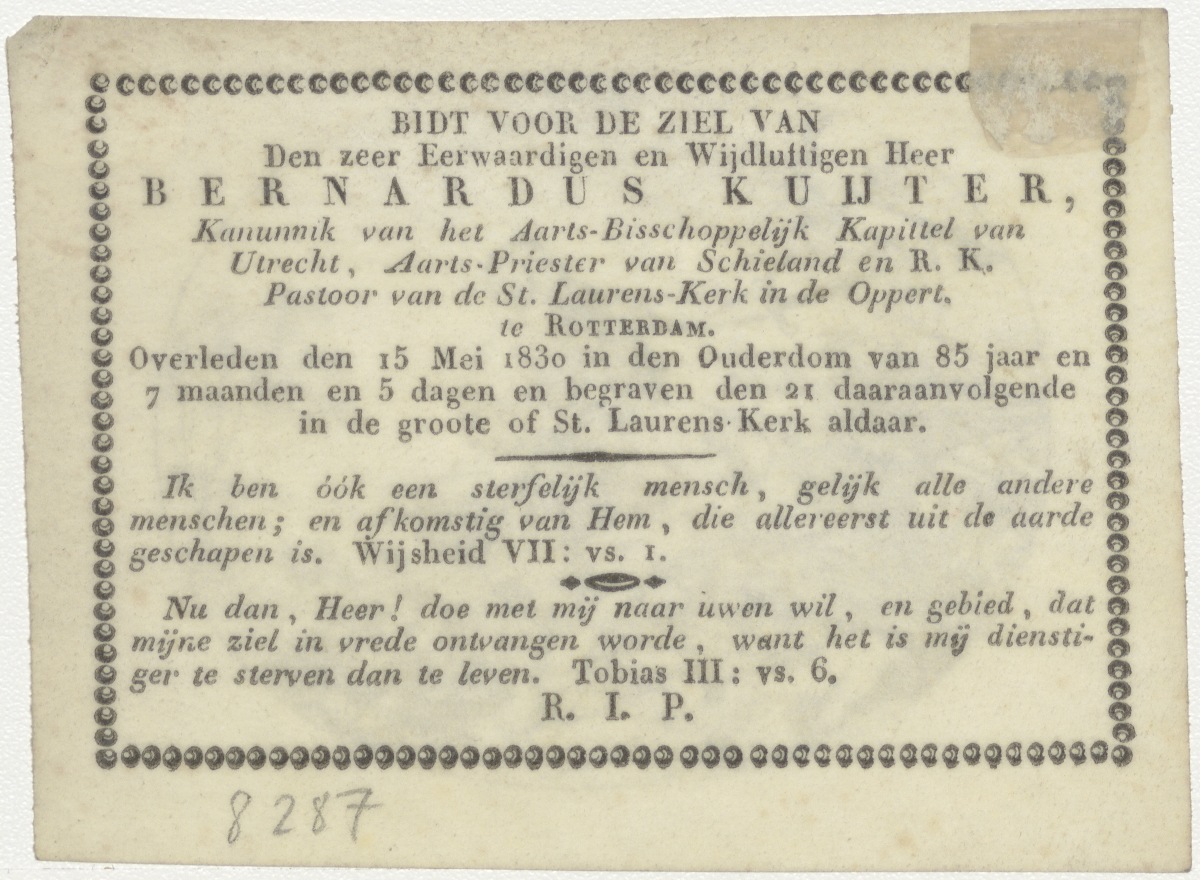 BIDT VOOR DE ZIEL VAN
Den zeer Eerwaardigen en Wijdluftigen Heer
BERNARDUS KUIJTER,
Kanunnik van het Aarts-Bisschoppelijk Kapittel van
Utrecht, Aarts-Priester van Schieland en R. K.
Pastoor van de St. Laurens-Kerk in de Oppert.
te ROTTERDAM.
Overleden den 15 Mei 1830 in den Ouderdom van 85 jaar en
7 maanden en 5 dagen en begraven den 21 daaraanvolgende
in de groote of St. Laurens-Kerk aldaar.
Ik ben óók een sterfelijk mensch, gelijk alle andere
menschen; en afkomstig van Hem, die allereerst uit de aarde
geschapen is. Wijsheid VII: vs. 1.
Nu dan, Heer! doe met mij naar uwen wil, en gebied, dat
mijne ziel in vrede ontvangen worde, want het is mij diensti-
ger te sterven dan te leven. Tobias III: vs. 6.
R. I. P.
8287